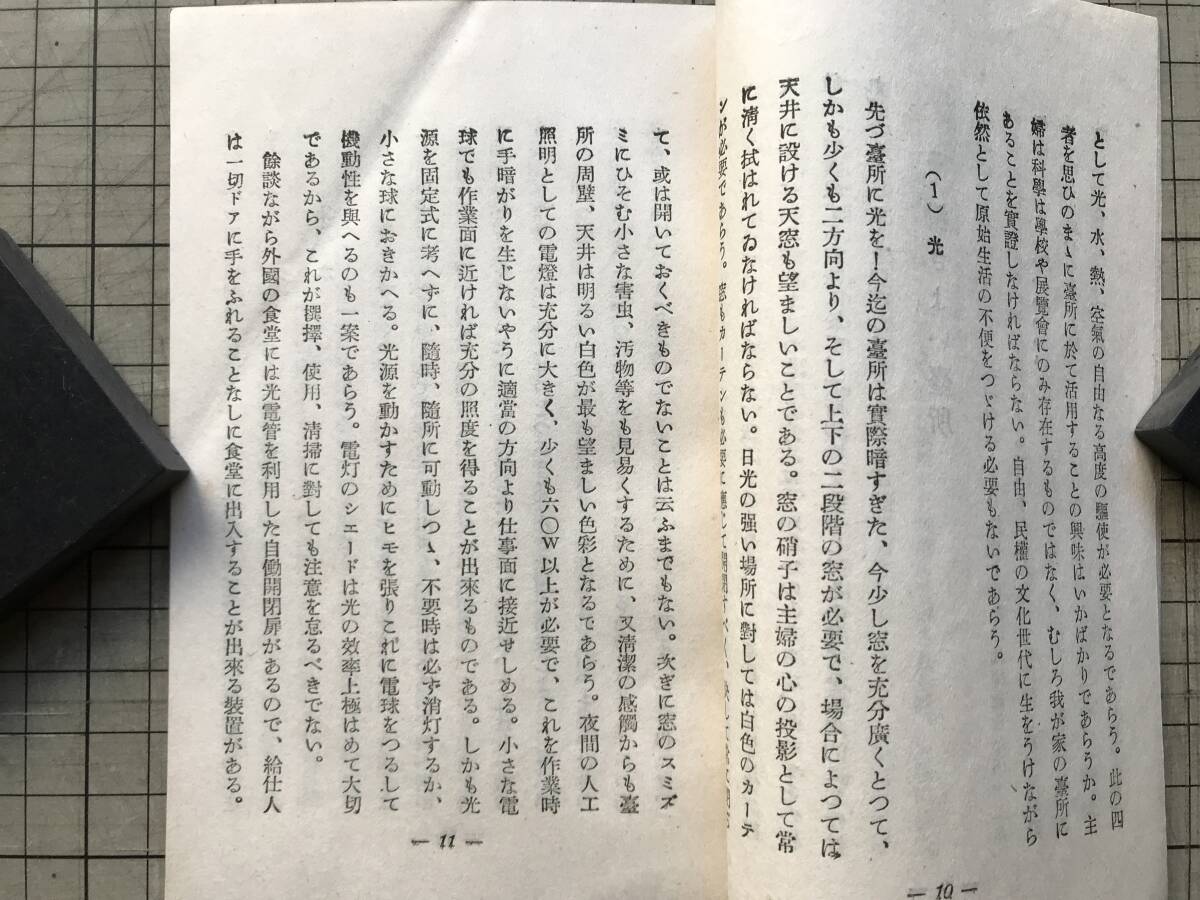 として光、水、熱、空氣の自由なる高度の驅使が必要となるであらう。此の四
者を思ひのまゝに臺所に於て活用することの興味はいかばかりであらうか。主
婦は科學は學校や展覽會にのみ存在するものではなく、むしろ我が家の臺所に
あることを實證しなければならない。自由、民權の文化世代に生をうけながら
依然として原始生活の不便をつゞける必要もないであらう。
(1) 光
先づ臺所に光を!今迄の臺所は實際暗すぎた、今少し窓を充分廣くとつて、
しかも少くも二方向より、そして上下の二段階の窓が必要で、場合によつては
天井に設ける天窓も望ましいことである。窓の硝子は主婦の心の投影として常
に淸く拭はれてゐなければならない。日光の强い場所に對しては白色のカーテ
ンが必要であらう。窓もカーテンも必要に應じて開閉すべく、
— 10 —
て、或は開いておくべきものでないことは云ふまでもない。次ぎに窓のスミズ
ミにひそむ小さな害虫、汚物等をも見易くするために、又淸潔の感觸からも臺
所の周壁、天井は明るい白色が最も望ましい色彩となるであらう。夜間の人工
照明としての電燈は充分に大きく、少くも六〇W以上が必要で、これを作業時
に手暗がりを生じないやうに適當の方向より仕事面に接近せしめる。小さな電
球でも作業面に近ければ充分の照度を得ることが出來るものである。しかも光
源を固定式に考へずに、隨時、隨所に可動しつゝ、不要時は必ず消灯するか、
小さな球におきかへる。光源を動かすためにヒモを張りこれに電球をつるして
機動性を與へるのも一案であらう。電灯のシエードは光の效率上極はめて大切
であるから、これが撰擇、使用、淸掃に對しても注意を怠るべきでない。
餘談ながら外國の食堂には光電管を利用した自働開閉扉があるので、給仕人
は一切ドアに手をふれることなしに食堂に出入することが出來る裝置がある。
— 11 —